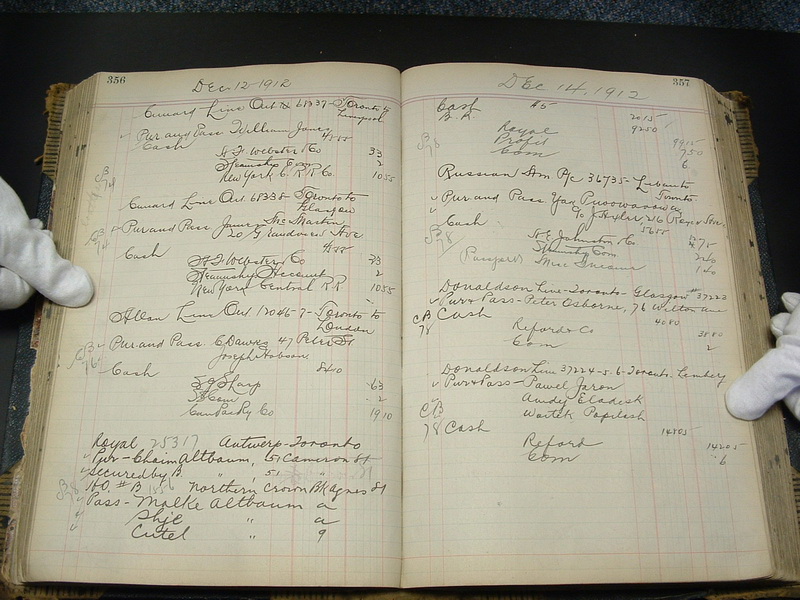 356
Dec 12-1912
Cunard Line Out 68337-Toronto to
Liverpool
Pur and Pass William James
Cash
H F Webster Co 33
Steamship Com 2
New York C. R R Co. 1055
CB
74
Cunard Line Out 68338-Toronto to
Glasgow
Pur and Pass James Mc Martin
20 Ave
CB
74
Cash
H F Webster Co 33
Steamship Account 2
New York Central RR 1055
Allan Line Out 12046-7-Toronto to
London
Pur and Pass C Dawks 47 Peter St
Joseph Hobson
CB
76
Cash 8410
S J Sharp 63
SS Com 2
Can Pac Ry Co 1910
Royal 25317 Antwerp-Toronto
Pur-Chaim Altbaum, 51 Cameron St
Secured by B " 51 "
H.O. # B Northern Crown Bk Agnes St
Pass-Malke Altbaum a
" a
Cutel " 9
357
Dec 14, 1912
Cash #5 2015
B.R. 9250
Royal
Profit 750
Com 6
Russian Am P/c 36735-Libau to
Toronto
Pur and Pass
Cash 5655
CB
78
H E Johnston Co
Steamship Com
Passport 140
Donaldson Line-Toronto-Glasgow # 37223
Pur & Pass-Peter Osborne, 76 Wilton ave
CB
78
Cash 4080
Reford & Co 3880
Com 2
Donaldson Line 37224-5-6-Toronto-Lemberg
Pur & Pass-Pawel Jaron
Andej Eladesk
Wortek Papilash
CB
78
Cash 14805
Reford 14205
Com 6